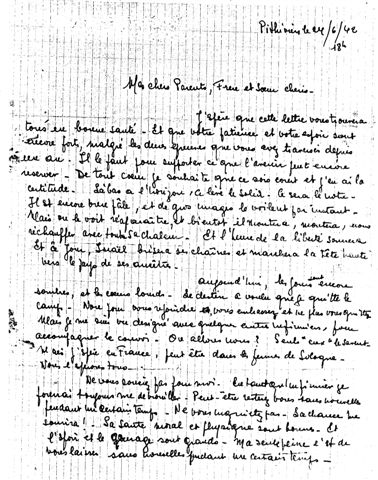 Pithiviers le 24/6/42
18h
Mes chers Parents, Frère et Sœur chéris.
J'espère que cette lettre vous trouvera
tous en bonne santé - Et que votre patience et votre espoir sont
encore forts, malgré les deux que vous avez depuis
un an. Il le faut pour supporter ce que l'avenir peut encore
réserver - De tout cœur je souhaite que ce soit court et j'en ai la
certitude - Là bas à l'horizon, se lève le soleil - Ce sera le notre -
Il est encore bien pâle, et de gros nuages le voilent par instant -
Mais on le voit réapparaître et bientôt il montera, montera, nous
réchauffer avec toute sa chaleur - Et l'heure de la liberté sonnera
Et à jour, Israël brisera ses chaînes et marchera la tête haute
vers le pays de ses ancêtres -
Aujourd'hui, les jours sont encore
sombres, et les cœurs lourds - Le destin a voulu que je quitte le
camp - Non pour vous rejoindre vous embrasser et ne plus vous quitter
Mais je me suis vu désigné avec quelques autres infirmiers, pour
accompagner le convoi - Où allons nous ? Seuls "eux" le savent
Mais j'espère en France, peut être dans les fermes de Sologne -
Nous l'espérons tous -
Ne vous souciez pas pour moi. En tant qu'infirmier je
pourrai toujours me débrouiller - Peut-être restez vous sans nouvelles
pendant un certain temps - Ne vous inquiétez pas - La chance me
sourira ! - La santé moral et physique sont bonnes - Et
l'espoir et le courage sont grands - Ma seule peine c'est de
vous laisser sans nouvelles pendant un certain temps -